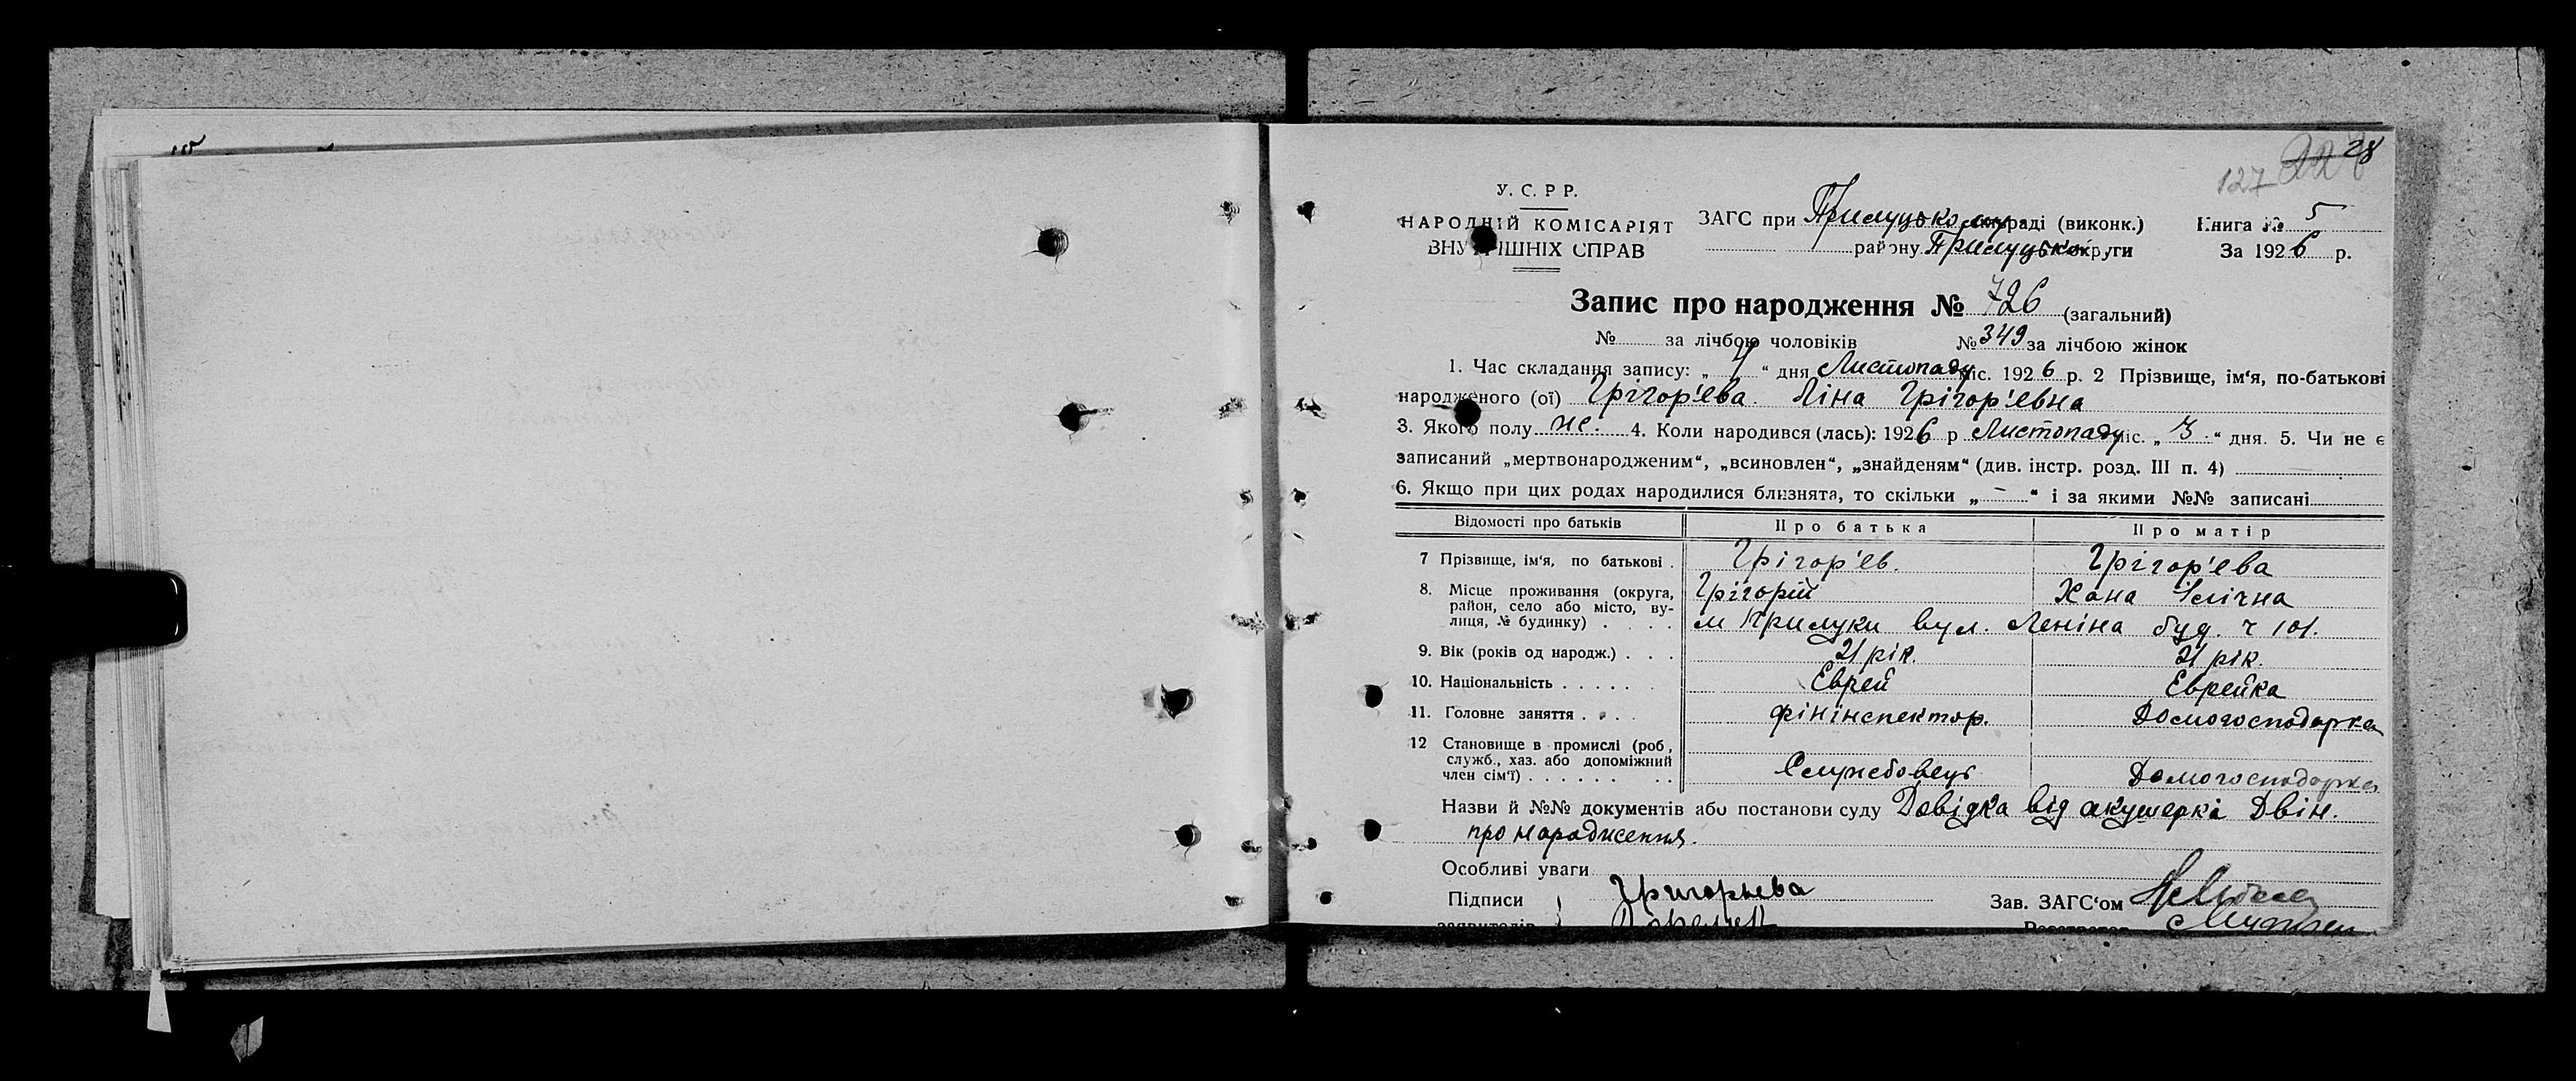 28
127
У. С. Р Р.
НАРОДНІЙ КОМІСАРІЯТ
ВНУТРІШНІХ СПРАВ
ЗАГС при Прилуцькому раді (виконк.)
району Прилуцько округи
Книга № 5
За 1926 р.
Запис про народження № 726 (загальний)
№ за лічбою чоловіків № 349 за лічбою жінок
1. Час складання запису: „ 4 “ дня Листопаду міс. 1926 р. 2 Прізвище, ім‘я, по-батькові
народженого (ої) Грігор'єва Ліна Грігор'евна
3. Якого полу ж. 4. Коли народився (лась): 1926 р Листопаду міс. „ 3 “ дня. 5. Чи не є
записаний „мертвонародженим“, „всиновлен“, „знайденям“ (див. інстр. розд. III п. 4)
6. Якщо при цих родах народилися близнята, то скільки „ – “ і за якими №№ записані
Відомості про батьків Про батька Про матір
7 Прізвище, ім‘я, по батькові . Грігор'єв. Грігор'єва
Грігорій Хана Ілічна
8. Місце проживання (округа,
район, село або місто, ву-
лиця, № будинку) . . . . м Прилуки вул. Леніна буд. ч 101.
9. Вік (років од народж.) . . . 21 рік. 21 рік.
10. Національність . . . . . . Еврей Еврейка
11. Головне заняття . . . . фінінспектор. Домогосподарка
12 Становище в промислі (роб,
служб., хаз. або допоміжний
член сім‘ї) . . . . . . . . Службовець Домогосподарка
Назви й №№ документів або постанови суду Довідка від акушеркі Двін.
про народження.
Особливі уваги
Підписи Григорьева Зав. ЗАГС‘ом
заявителів